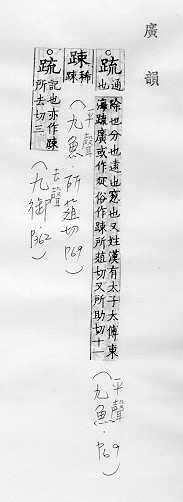 廣韻
疏通也除也分也遠也窻也又姓漢有太子太傅東
海踈廣或作䟽俗作踈所葅切又所助切十一
(平聲
九魚·P69)
踈稀踈
(平聲
九魚·所葅切P69)
疏記也亦作踈
所去切三
(去聲
九御P362)